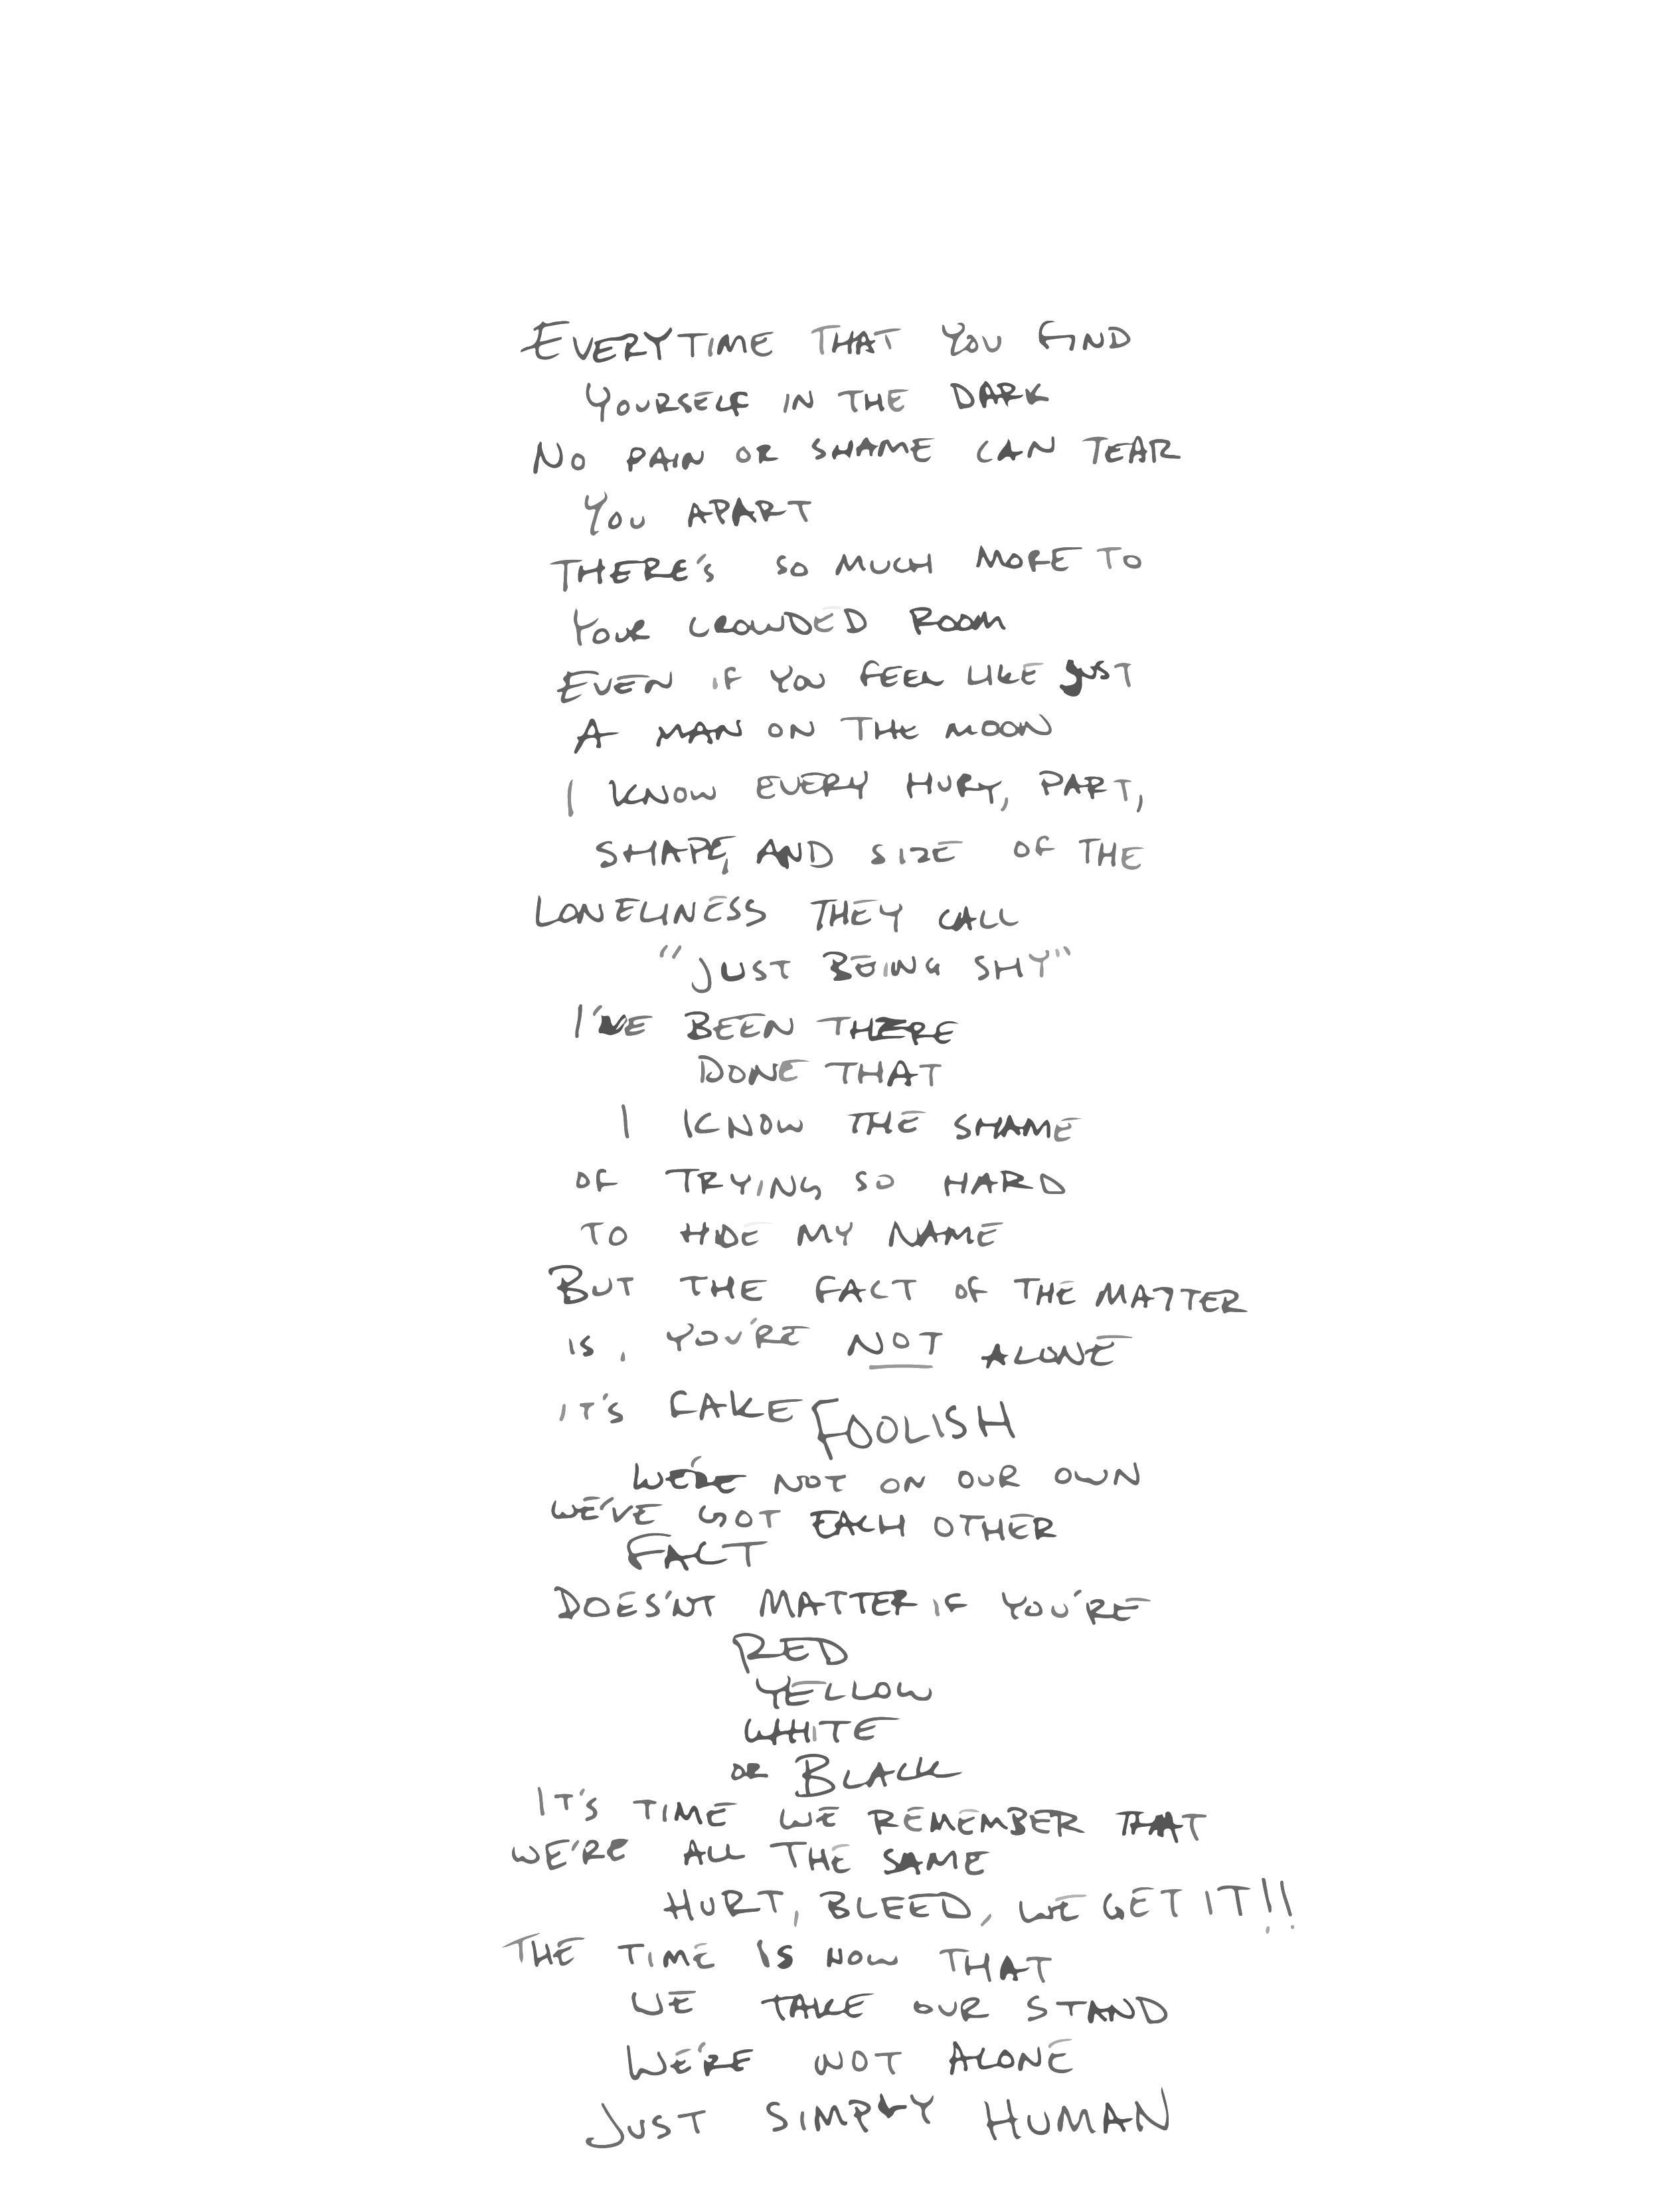 EVERYTIME THAT YOU FIND
YOURSELF IN THE DARK
NO PAIN OR SHAME CAN TEAR
YOU APART
THERE'S SO MUCH MORE TO
YOUR CROWDED ROOM
EVEN IF YOU FEEL LIKE JUST
A MAN ON THE MOON
I KNOW EVERY HURT, PART,
SHAPE, AND SIZE OF THE
LONELINESS THEY CALL
"JUST BEING SHY"
I'VE BEEN THERE
DONE THAT
I KNOW THE SHAME
OF TRYING SO HARD
TO HIDE MY NAME
BUT THE FACT OF THE MATTER
IS, YOU'RE NOT ALONE
IT'S FAKE FOOLISH
WE'RE NOT ON OUR OWN
WE'VE GOT EACH OTHER
FACT
DOES'NT MATTER IF YOU'RE
RED
YELLOW
WHITE
OR BLACK
IT'S TIME WE REMEMBER THAT
WE'RE ALL THE SAME
HURT, BLEED, WE GET IT!!
THE TIME IS NOW THAT
WE TAKE OUR STAND
WE'RE NOT ALONE
JUST SIMPLY HUMAN